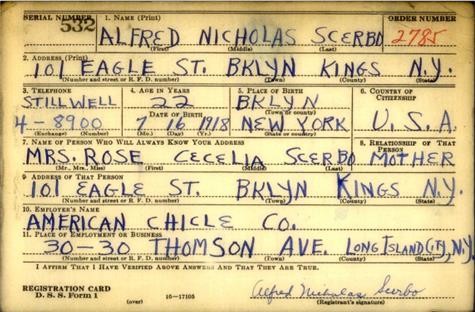 SERIAL NUMBER 532 1. NAME (Print) ORDER NUMBER
ALFRED NICHOLAS SCERBO 2785
(First) (Middle) (Last)
2. ADDRESS (Print)
101 EAGLE ST. BKLYN KINGS N.Y.
(Number and street or R. F. D. number) (Town) (County) (State)
3. TELEPHONE 4. AGE IN YEARS 5. PLACE OF BIRTH 6. COUNTRY OF CITIZENSHIP
STILLWELL 22 BKLYN
DATE OF BIRTH (Town or county)
4-8900 7 16 1918 NEW YORK U.S.A.
(Exchange) (Number) (Mo.) (Day) (Yr.) (State or country)
7. NAME OF PERSON WHO WILL ALWAYS KNOW YOUR ADDRESS 8. RELATIONSHIP OF THAT PERSON
MRS. ROSE CECELIA SCERBO MOTHER
(Mr., Mrs., Miss) (First) (Middle) (Last)
9. ADDRESS OF THAT PERSON
101 EAGLE ST. BKLYN KINGS N.Y.
(Number and street or R. F. D. number) (Town) (County) (State)
10. EMPLOYER'S NAME
AMERICAN CHICLE CO.
11. PLACE OF EMPLOYMENT OR BUSINESS
30-30 THOMSON AVE. LONG ISLAND CITY, N.Y.
(Number and street or R. F. D. number) (Town) (County) (State)
I AFFIRM THAT I HAVE VERIFIED ABOVE ANSWERS AND THAT THEY ARE TRUE.
REGISTRATION CARD
D. S. S. Form 1 (over) 16-17105 Alfred Nicholas Scerbo
(Registrant's signature)